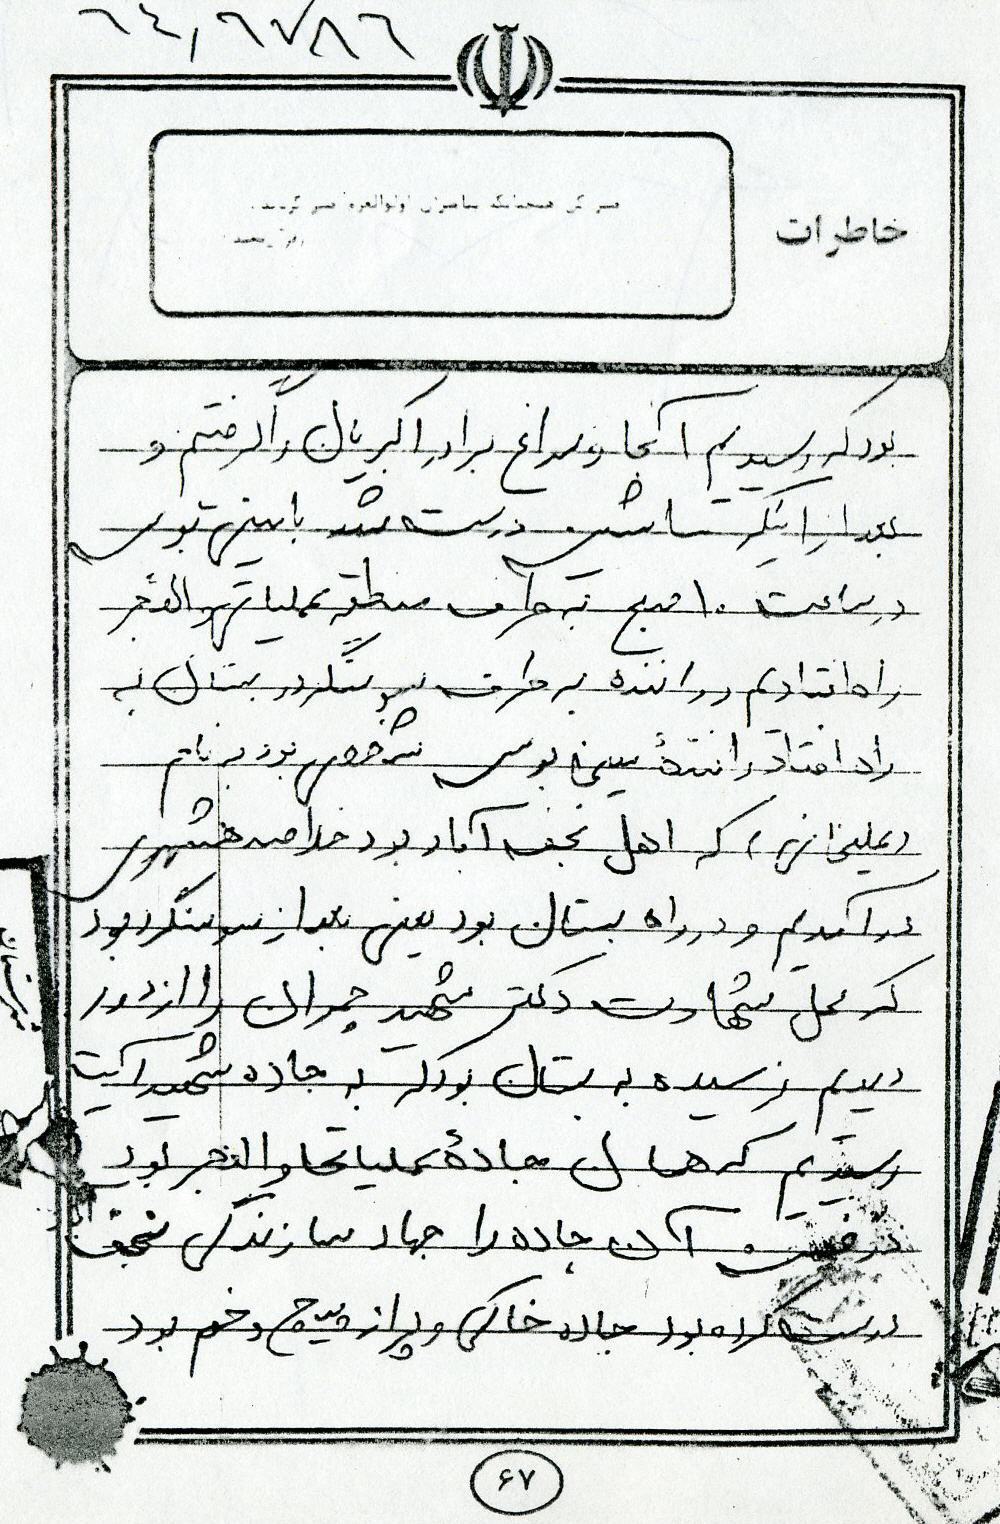 خاطرات
صبر کن همچنانکه پیامبران اولوالعزم صبر کردند.
بود که رسیدیم آنجا و سراغ برادر اکبریان را گرفتم و
بعد از اینکه ماشین درست شد با مینی بوس
در ساعت ۱۰ صبح به طرف منطقه عملیاتی والفجر
راه افتادیم و راننده به طرف سوسنگرد و بستان به
راه افتاد رانندۀ مینی بوس شخصی بود به نام
که اهل نجف آباد بود خلاصه همشهری
در آمدیم و در راه بستان بود یعنی بعد از سوسنگرد بود
که محل شهادت دکتر شهید چمران را از دور
دیدیم نرسیده به بستان بود که به جاده شهید آیت
رسیدیم که همان جادۀ عملیاتی والفجر بود
آن جاده را جهاد سازندگی نجف
درست کرده بود جاده خاکی و پر از پیچ و خم بود
۶۷